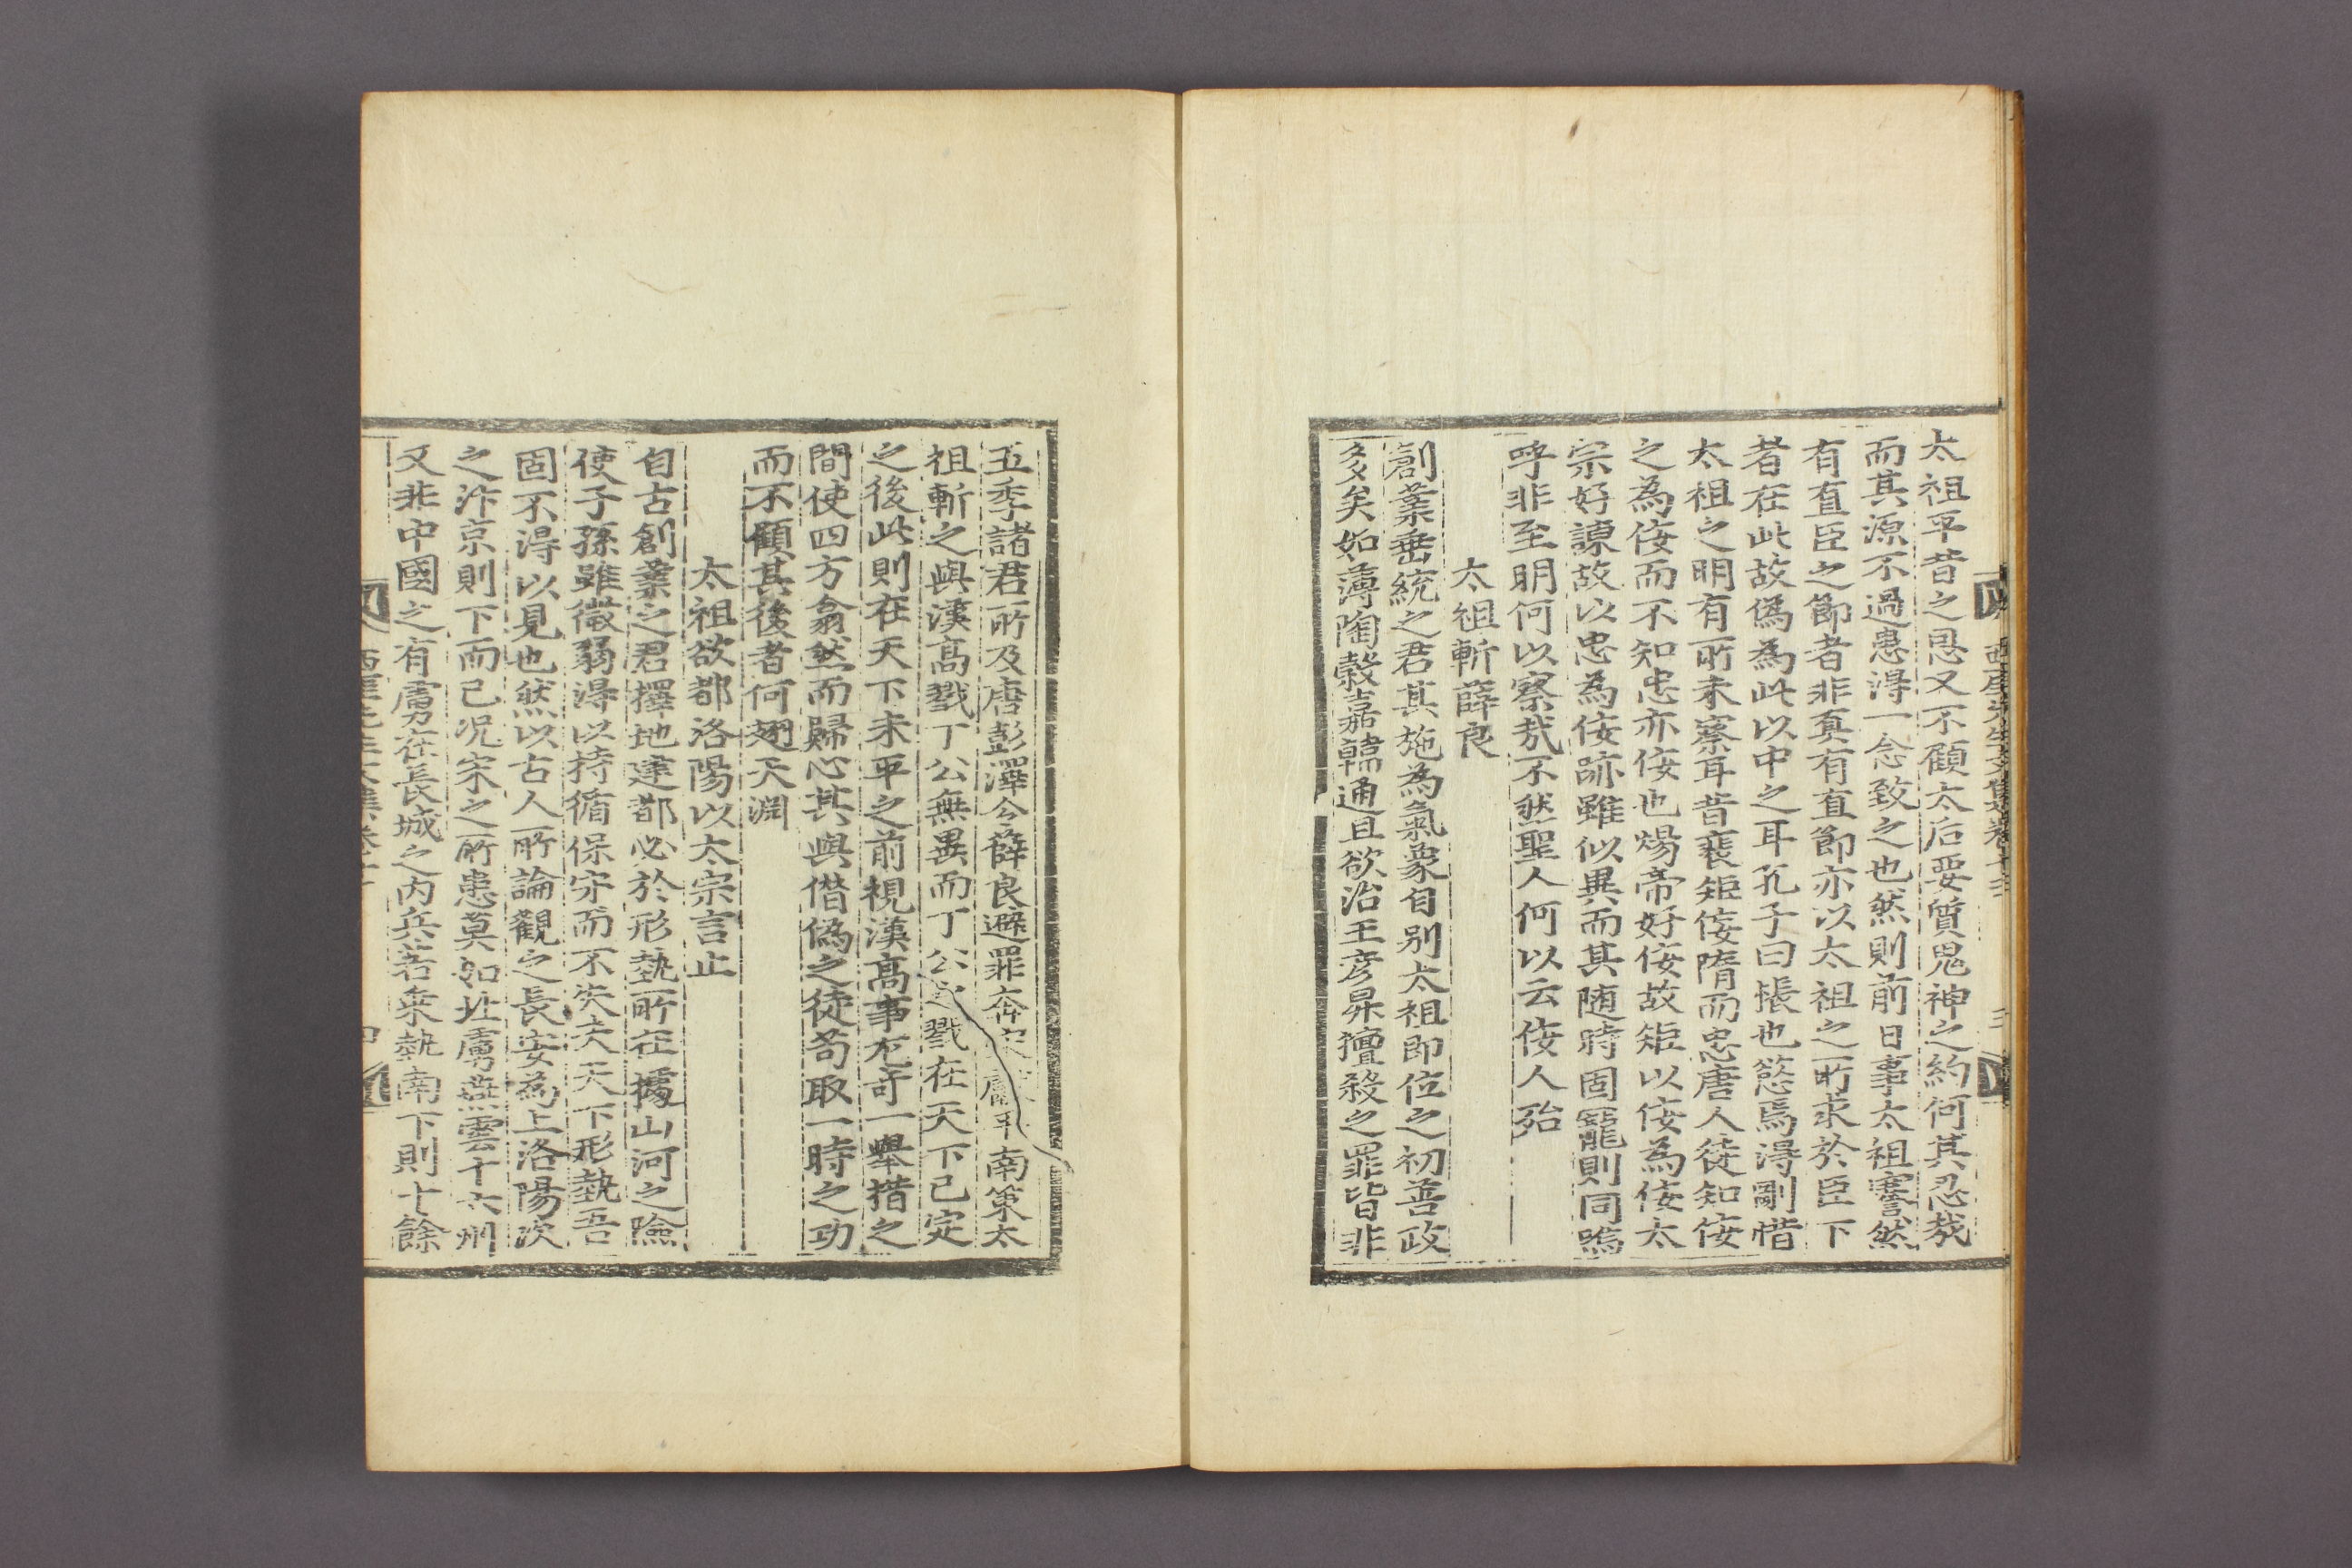 太祖平昔之恩又不顧太后要質鬼神之約何其忍哉
而其源不過患得一念致之也然則前日事太祖謇然
有直臣之節者非真有直節亦以太祖之所求於臣下
者在此故僞為此以中之耳孔子曰棖也慾焉得剛惜
太祖之明有所未察耳昔裴矩佞隋而忠唐人徒知佞
之為佞而不知忠亦佞也煬帝好佞故矩以佞為佞太
宗好諫故以忠為佞跡雖似異而其随時固寵則同嗚
呼非至明何以察哉不然聖人何以云佞人殆
太祖斬薛良
創業垂統之君其施為氣象自别太祖即位之初善政
多矣如薄陶穀嘉韓通且欲治王彦昇擅殺之罪皆非
五季諸君所及唐彭澤令薛良避罪奔宋 平南策太
祖斬之與漢高戮丁公無異而丁公之戮在天下已定
之後此則在天下未平之前視漢高事尤奇一舉措之
間使四方翕然而歸心其與僭僞之徒苟取一時之功
而不顧其後者何翅天淵
太祖欲都洛陽以太宗言止
自古創業之君擇地建都必於形埶所在據山河之險
使子孫雖微弱得以持循保守而不失夫天下形埶吾
固不得以見也然以古人所論觀之長安為上洛陽次
之汴京則下而已況宋之所患莫如北虜燕雲十六州
又非中國之有虜在長城之内兵若乘埶南下則十餘